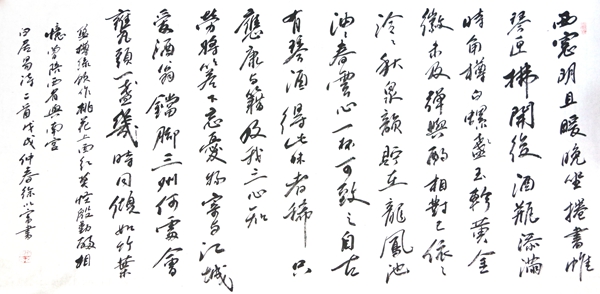 西窗明且暖晚坐捲書帷
琴匣拂開後酒瓶添滿
時角樽白螺盞玉軫黃金
徽未及彈與酌相對已依〻
泠〻秋泉韻貯在龍鳳池
油〻春雲心一杯可致之自古
有琴酒得此味者稀只
應康与籍及我三心知
勞將箬下忘憂物寄与江城
愛酒翁鐺腳三州何處會
甕頭一盞幾時同傾如竹葉
盈樽綠飲作桃花上面紅莫怪殷勤醉相
憶曾陪西省與南宮
白居易詩二首戊戌仲春徐書